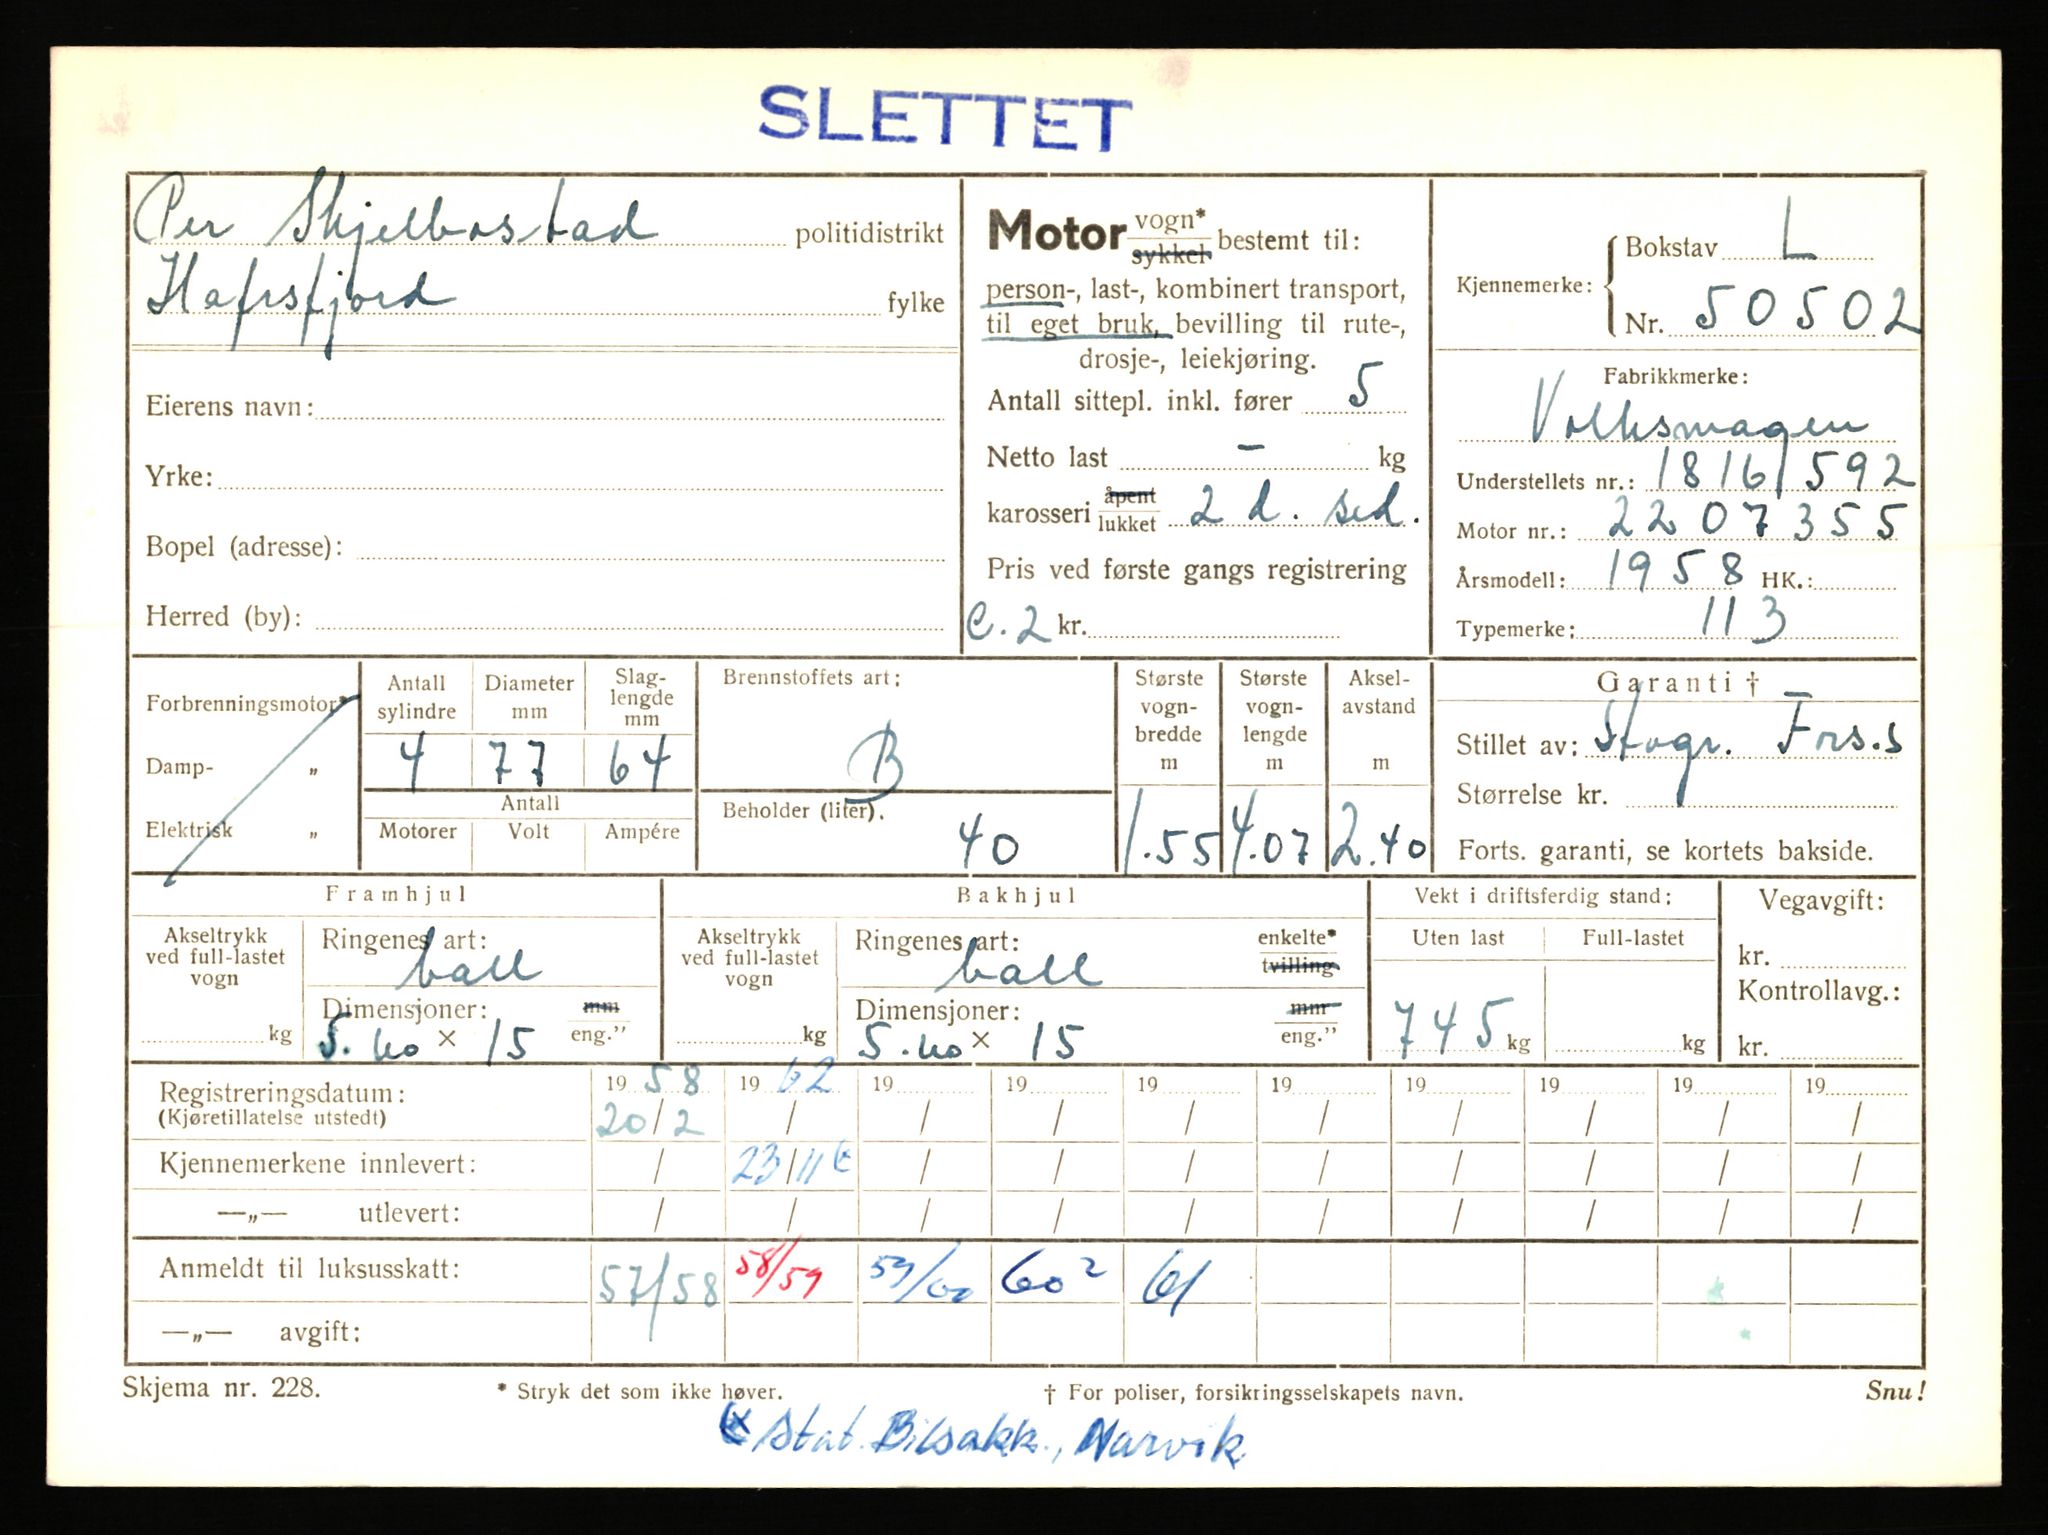 SLETTET
Per Skjelbostad politidistrikt
Hafrsfjord fylke
Eierens navn:
Yrke:
Bopel (adresse):
Herred (by):
Motor vogn* sykkel bestemt til:
person-, last-, kombinert transport,
til eget bruk, bevilling til rute-,
drosje-, leiekjøring.
Antall sittepl. inkl. fører 5
Netto last – kg
karosseri åpent lukket 2 d. sed.
Pris ved første gangs registrering
C.2 kr.
Kjennemerke: Bokstav L
Nr. 50502
Fabrikkmerke:
Volkswagen
Understellets nr.: 1816592
Motor nr.: 2207355
Årsmodell: 1958 HK.:
Typemerke: 113
Forbrenningsmotor*
Damp- „
Elektrisk „
Antall sylindre
4
Diameter mm
77
Slag-lengde mm
64
Antall
Motorer Volt Ampére
Brennstoffets art:
B
Beholder (liter).
40
Største vogn-bredde m
1.55
Største vogn-lengde m
4.07
Aksel-avstand m
2.40
Garanti †
Stillet av: Fors.s
Størrelse kr.
Forts. garanti, se kortets bakside.
Framhjul
Akseltrykk ved full-lastet vogn
kg
Ringenes art:
ball
Dimensjoner: mm
5.60 × 15 eng.”
Bakhjul
Akseltrykk ved full-lastet vogn
kg
Ringenes art: enkelte*
ball tvilling
Dimensjoner: mm
5.60 × 15 eng.”
Vekt i driftsferdig stand:
Uten last Full-lastet
745 kg kg
Vegavgift:
kr.
Kontrollavg.:
kr.
Registreringsdatum: 19 58 19 62 19 19 19 19 19 19 19 19
(Kjøretillatelse utstedt) 20/2 / / / / / / / / /
Kjennemerkene innlevert: / 23/11 / / / / / / / /
—„— utlevert: / / / / / / / / / /
Anmeldt til luksusskatt: 57/58 58/59 59/60 60² 61
—„— avgift:
Skjema nr. 228. * Stryk det som ikke høver. † For poliser, forsikringsselskapets navn. Snu!
Stat. Bilsakk., Narvik